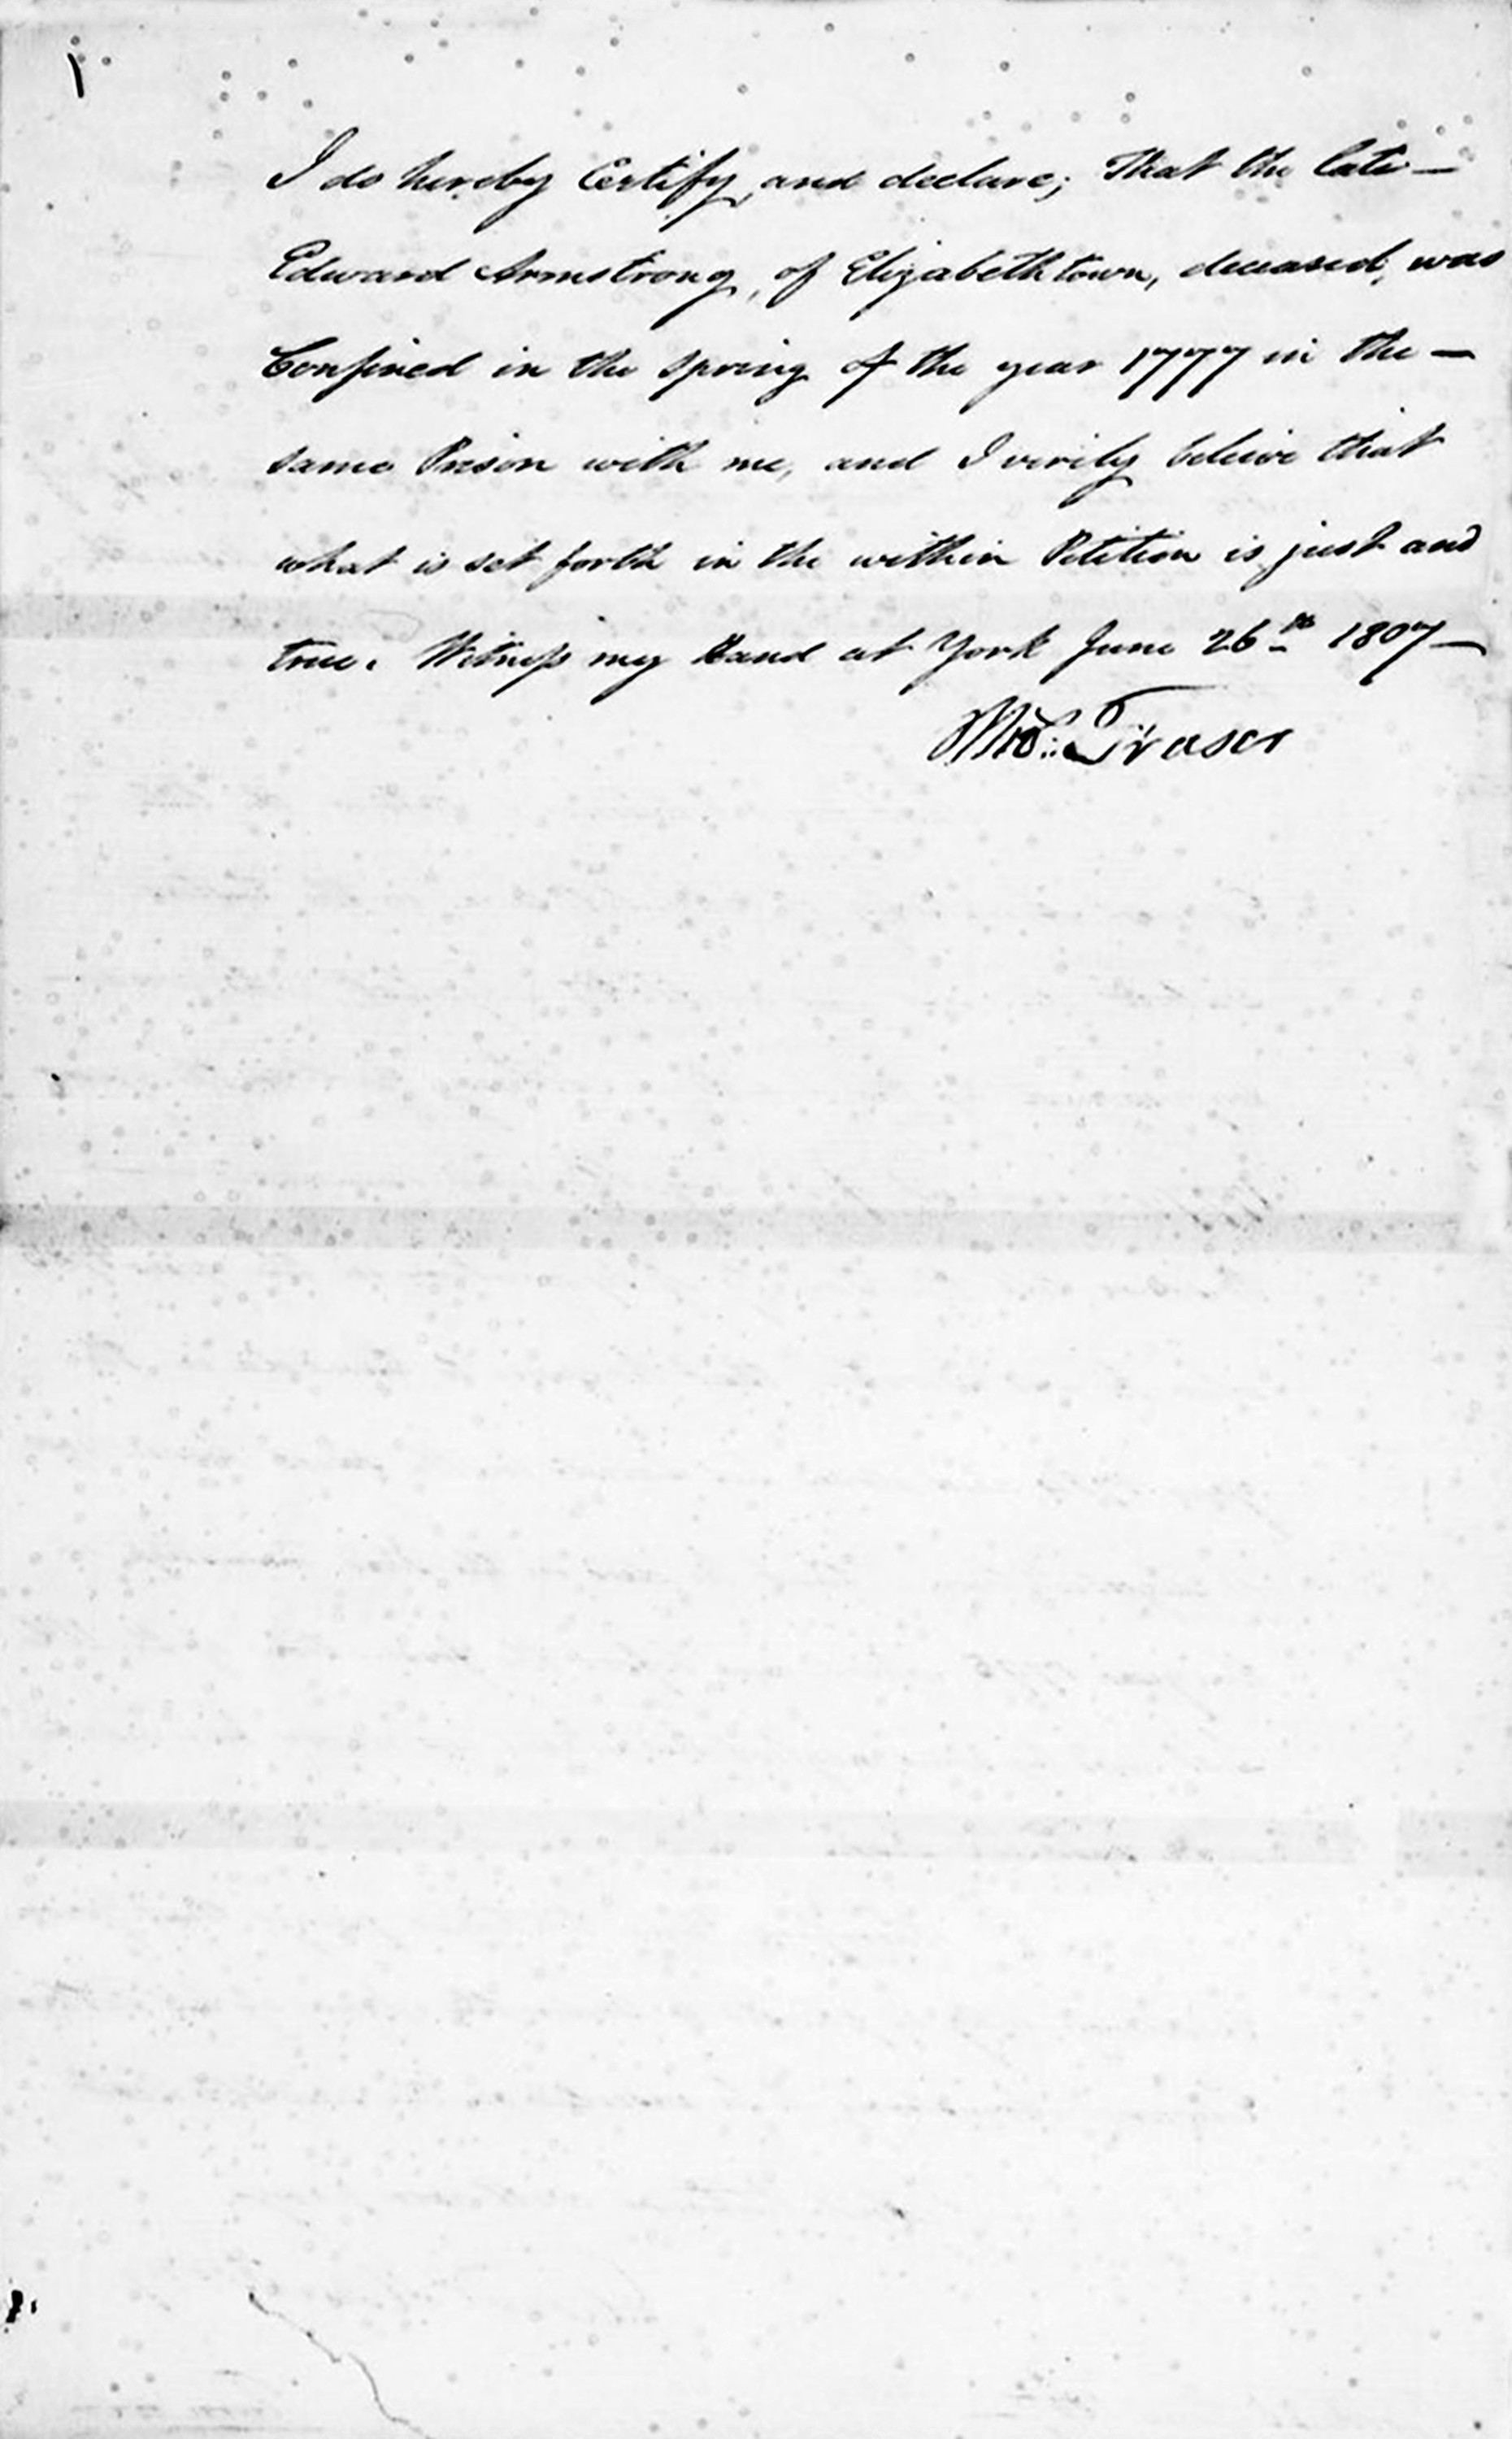 I do hereby Certify, and declare; That the late —
Edward Armstrong, of Elizabethtown, deceased, was
Confined in the Spring of the year 1777 in the —
same Prison with me, and I verily beleive that
what is set forth in the within Petition is just and
true. Witness my Hand at York June 26th 1807 —
Fraser